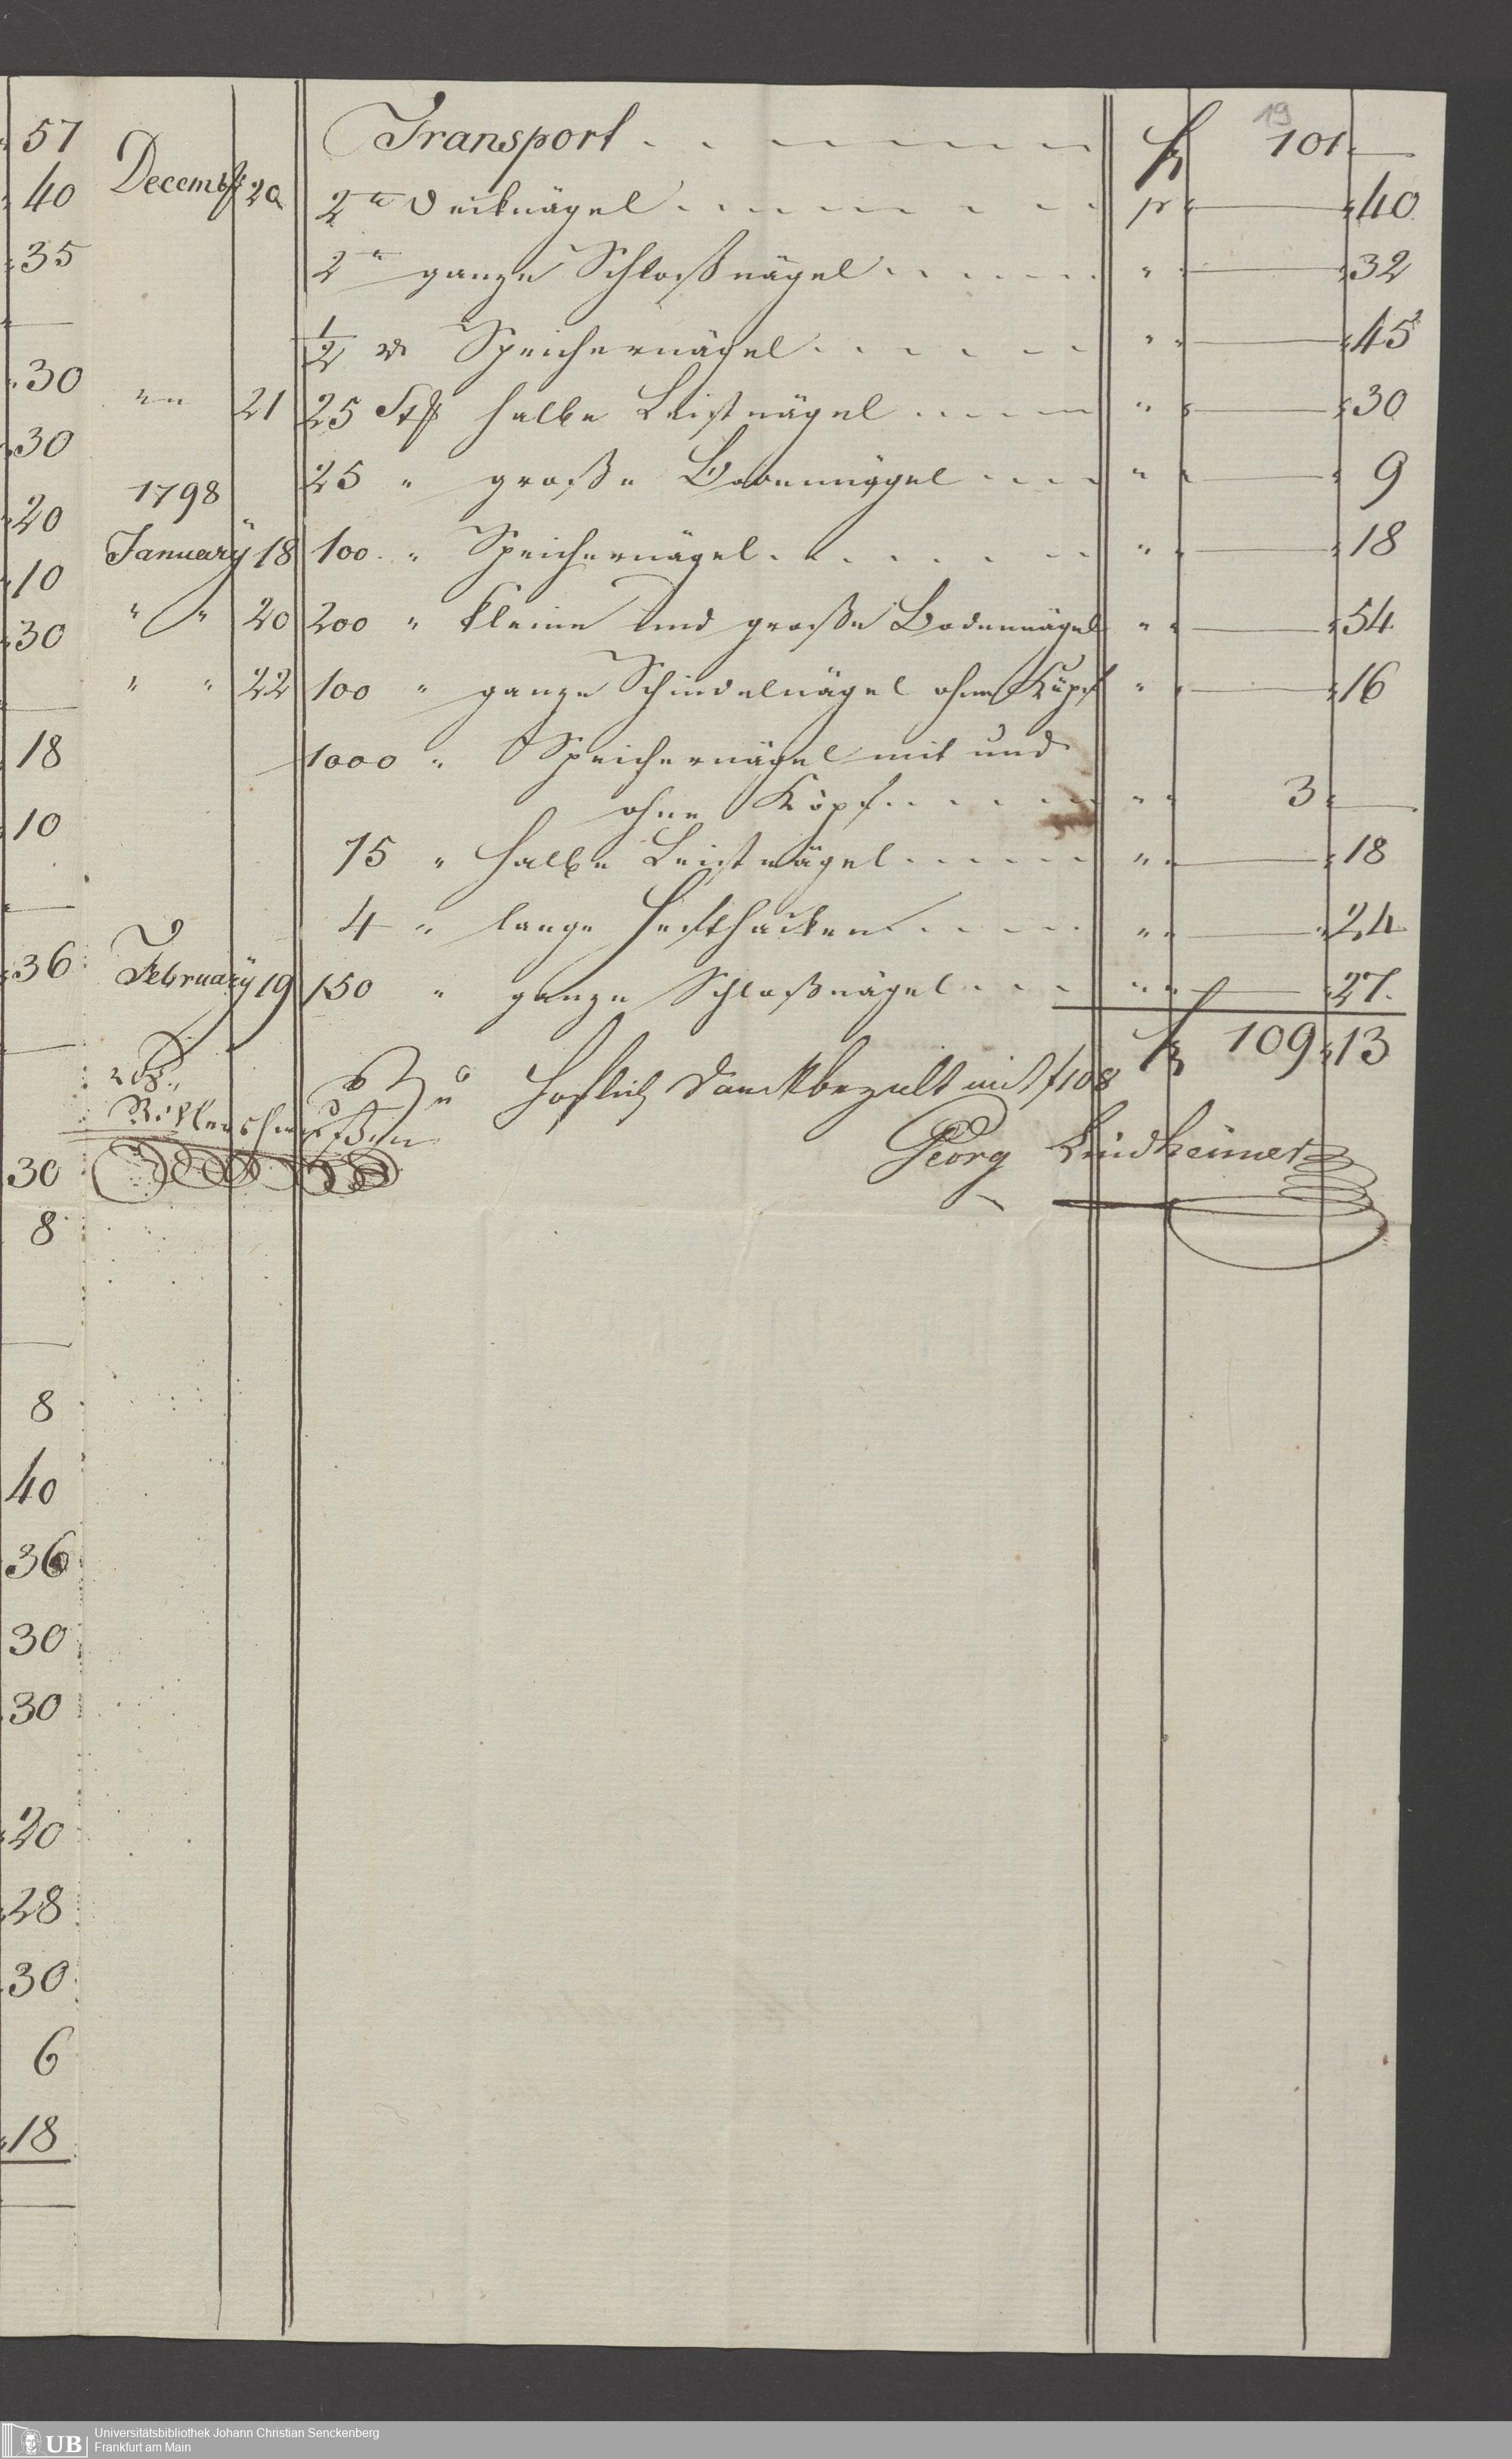 19
Transport f 101 —
Decembr 20 2 " Decknägel pr " — " 40
2 " ganze Schloßnägel " " — " 32
1/2 Speichernägel " " — " 45
" " 21 25 Stk halbe Leistnägel " " — " 30
25 " große Bodennägel " " — " 9
1798
Januarÿ 18 100 " Speichernägel " " — " 18
" " 20 200 " kleine und große Bodennägel " " — " 54
" " 22 100 " ganze Schindelnägel ohne Köpf " " — " 16
1000 " Speichernägel mit und
ohne Köpf " " 3 " —
15 " halbe Leistnägel " " — " 18
4 " lange Hefthacken " " — " 24
Februarÿ 19 150 " ganze Schloßnägel " " — " 27
f 109 " 13
Höflich Danck bezalt mit f 108
Georg Lindheimer
57
40
35
—
30
30
20
10
30
—
18
10
—
36
—
30
8
—
8
40
36
30
30
20
28
30
6
18
—
UB
Universitätsbibliothek Johann Christian Senckenberg
Frankfurt am Main